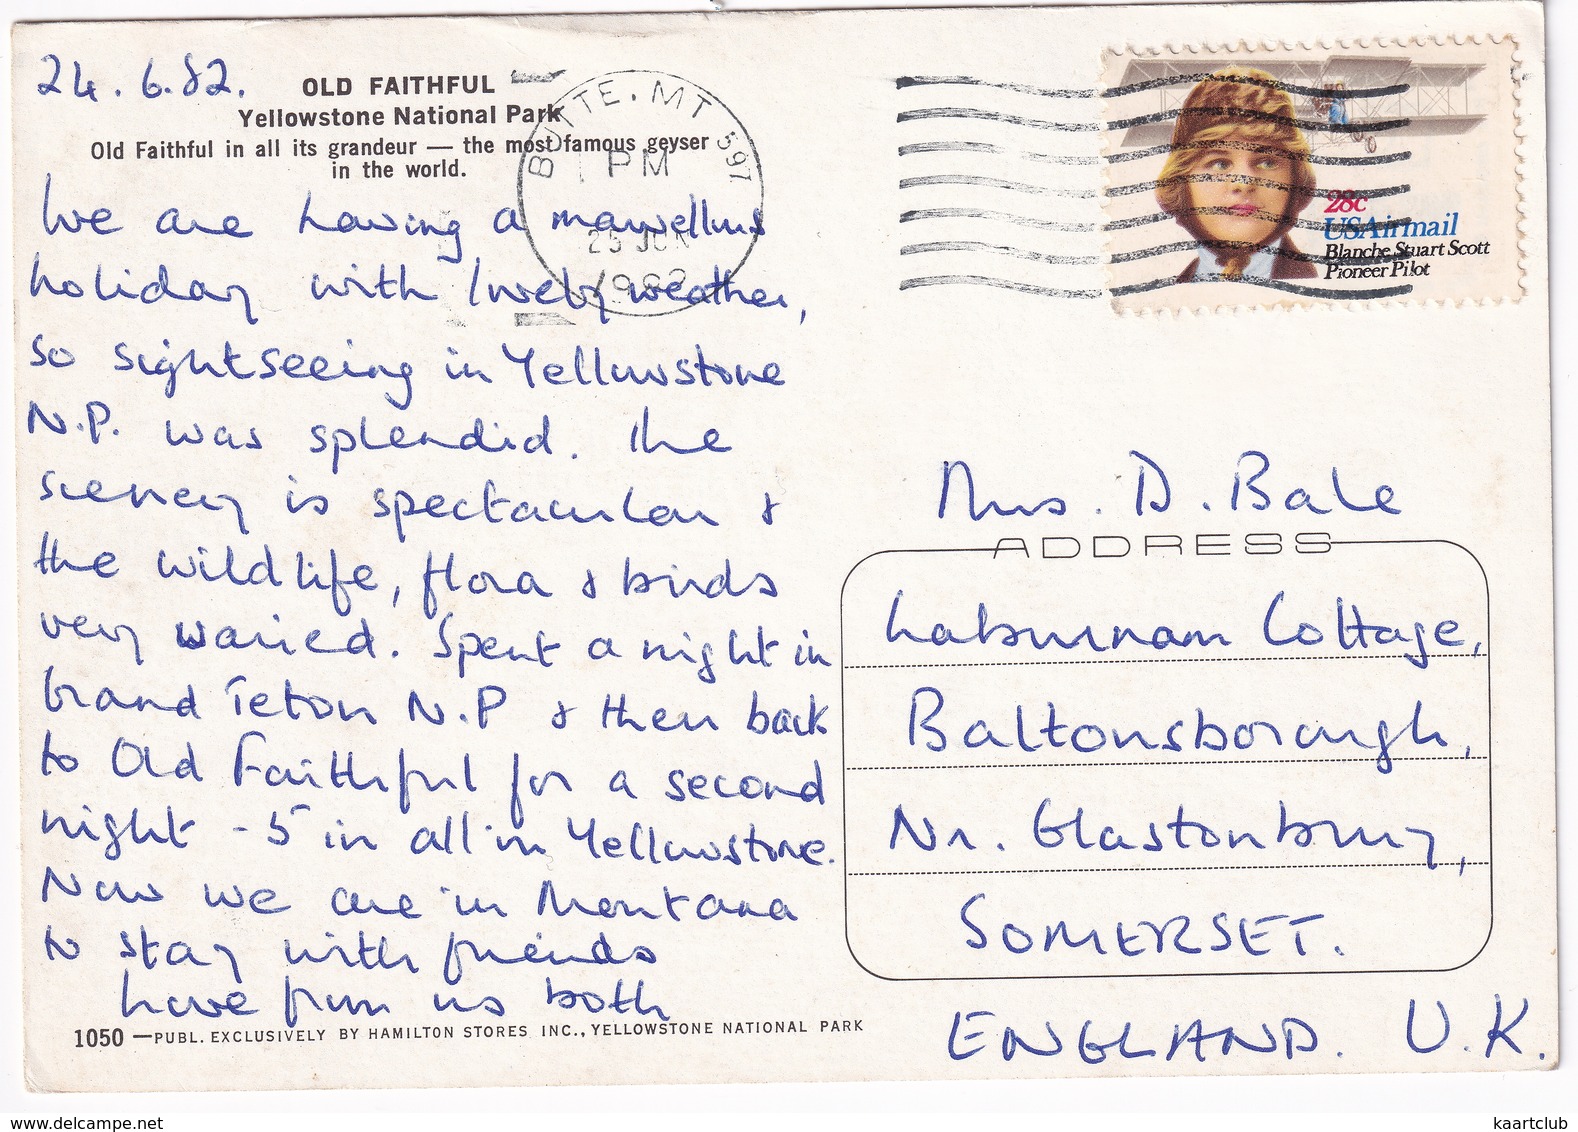 24.6.82.
OLD FAITHFUL
Yellowstone National Park
Old Faithful in all its grandeur — the most famous geyser
in the world.
We are having a marvellous
holiday with lovely weather,
so sightseeing in Yellowstone
N.P. was splendid. The
scenery is spectacular &
the wildlife, flora & birds
very varied. Spent a night in
Grand Teton N.P & then back
to Old Faithful for a second
night - 5 in all in Yellowstone.
Now we are in Montana
to stay with friends
love from us both
1050 — PUBL. EXCLUSIVELY BY HAMILTON STORES INC., YELLOWSTONE NATIONAL PARK
BUTTE, MT 597
PM
25 JUN
1982
28c
USAirmail
Blanche Stuart Scott
Pioneer Pilot
Mrs. D. Bale
ADDRESS
Laburnam Cottage,
Baltonsborough,
Nr. Glastonbury,
SOMERSET.
ENGLAND. U.K.
www.delcampe.net
kaartclub